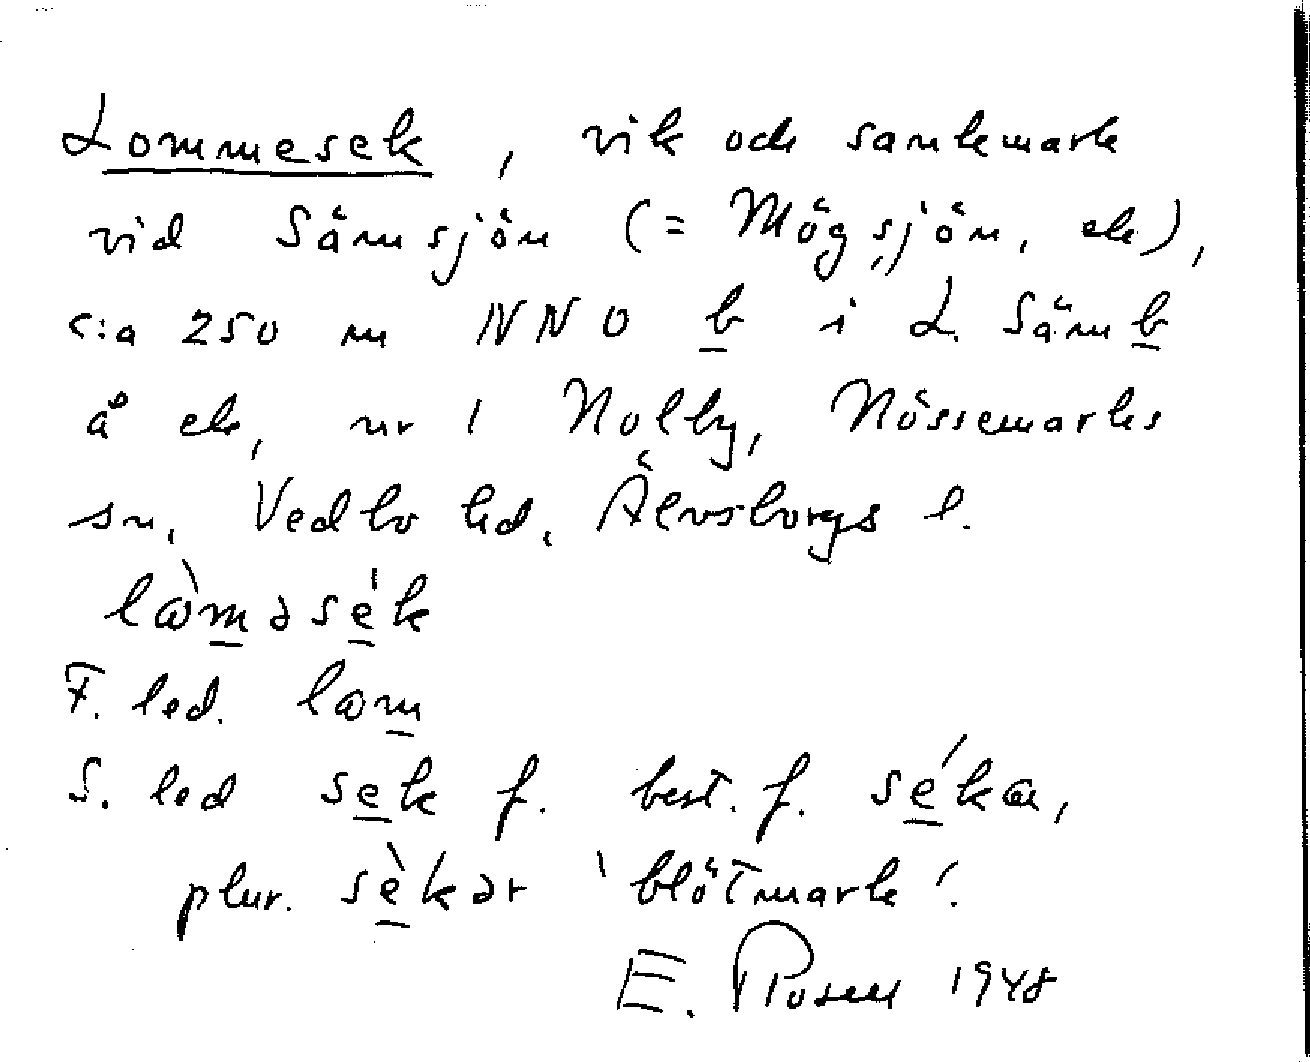 Lommesek, vik och sankmark
vid Sämsjön (= Mögsjön, ek),
c:a 250 m NNO b i L. Säm b
å ek, nr 1 Nolby, Nössemarks
sn, Vedbo hd, Älvsborgs l.
lòməsé'k
F. led. lom
S. led sek f. best. f. séka,
plur. sèkər 'blötmark'.
E. Rosell 1948